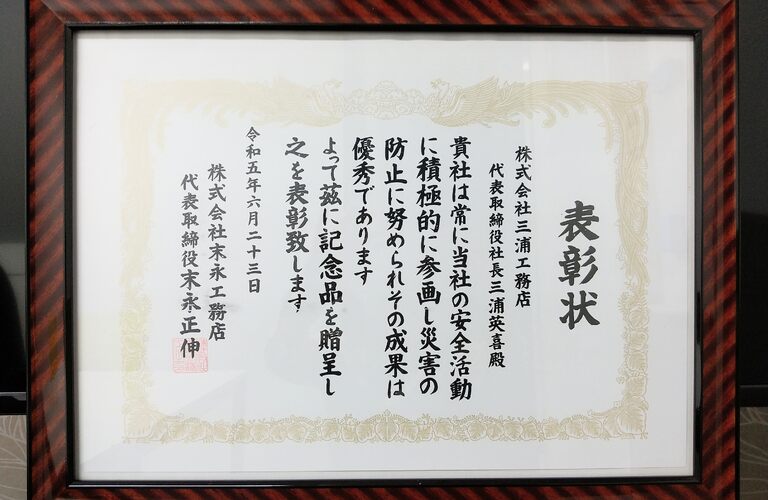 表彰状
株式会社三浦工務店
代表取締役社長三浦英喜殿
貴社は常に当社の安全活動
に積極的に参画し災害の
防止に努められその成果は
優秀であります
よって茲に記念品を贈呈し
之を表彰致します
令和五年六月二十三日
株式会社末永工務店
代表取締役末永正伸